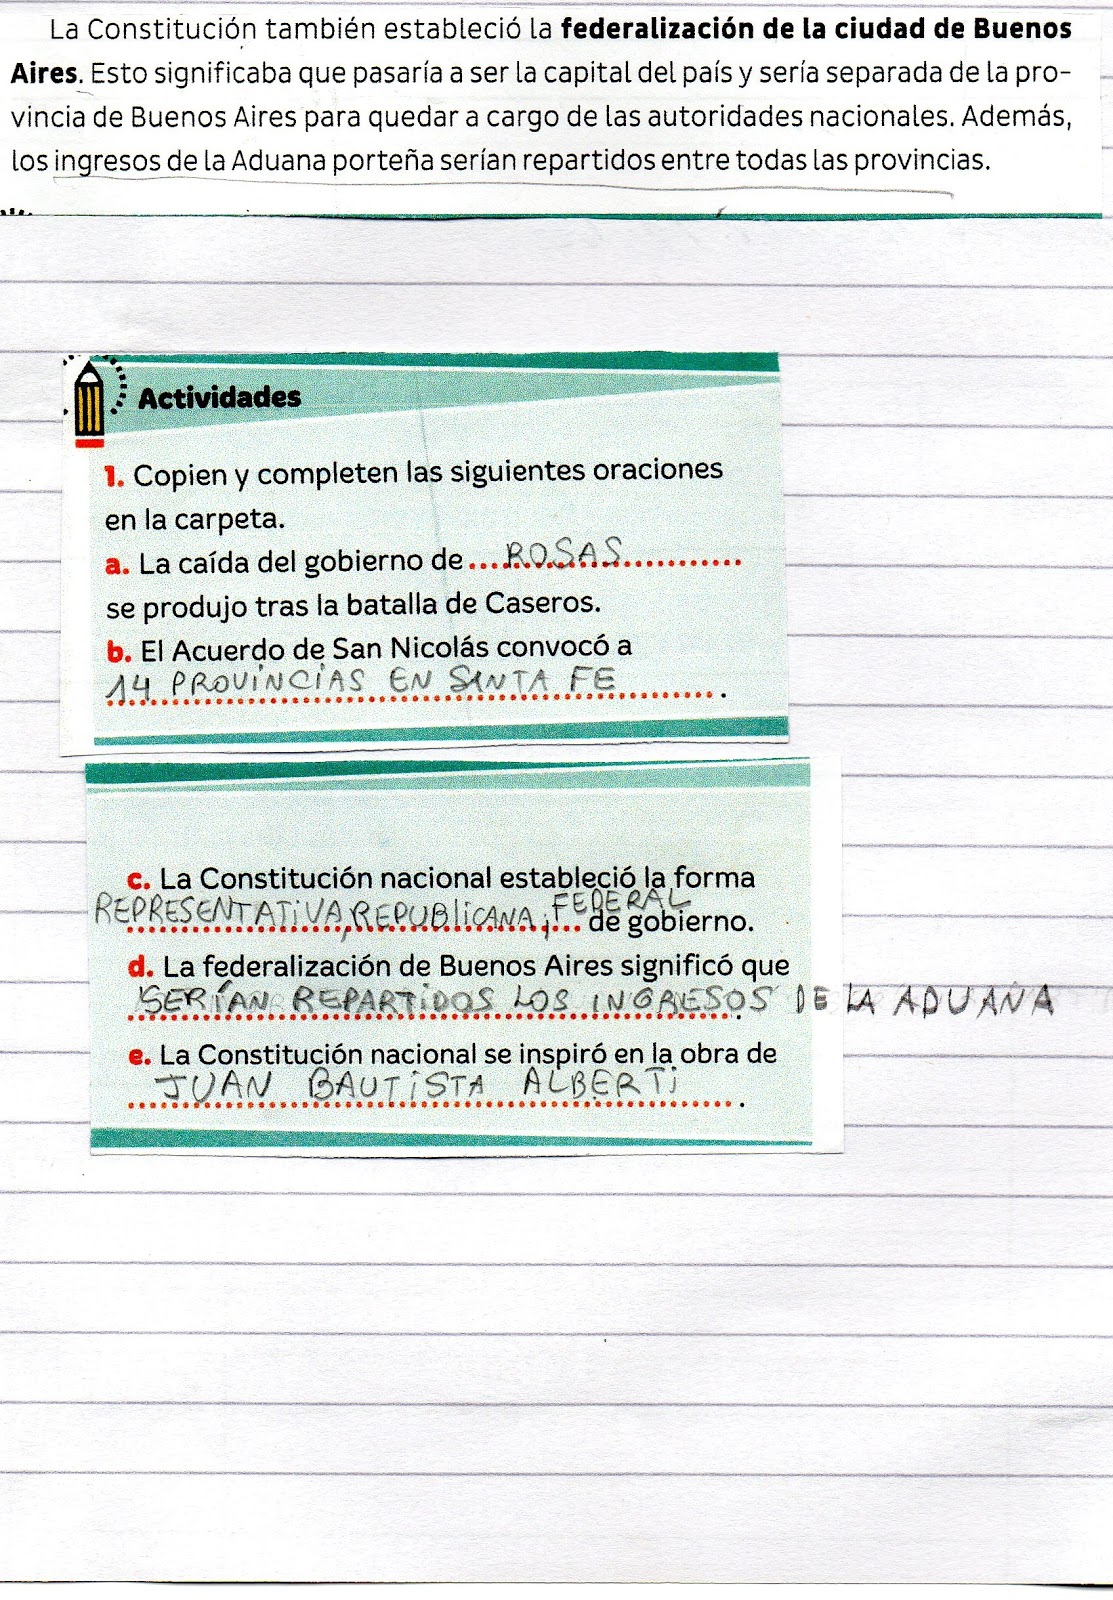 La Constitución también estableció la federalización de la ciudad de Buenos
Aires. Esto significaba que pasaría a ser la capital del país y sería separada de la pro-
vincia de Buenos Aires para quedar a cargo de las autoridades nacionales. Además,
los ingresos de la Aduana porteña serían repartidos entre todas las provincias.
Actividades
1. Copien y completen las siguientes oraciones
en la carpeta.
a. La caída del gobierno de ....ROSAS............
se produjo tras la batalla de Caseros.
b. El Acuerdo de San Nicolás convocó a
14 PROVINCIAS EN SANTA FE .
c. La Constitución nacional estableció la forma
REPRESENTATIVA, REPUBLICANA, FEDERAL de gobierno.
d. La federalización de Buenos Aires significó que
SERÍAN REPARTIDOS LOS INGRESOS DE LA ADUANA
e. La Constitución nacional se inspiró en la obra de
JUAN BAUTISTA ALBERTI .